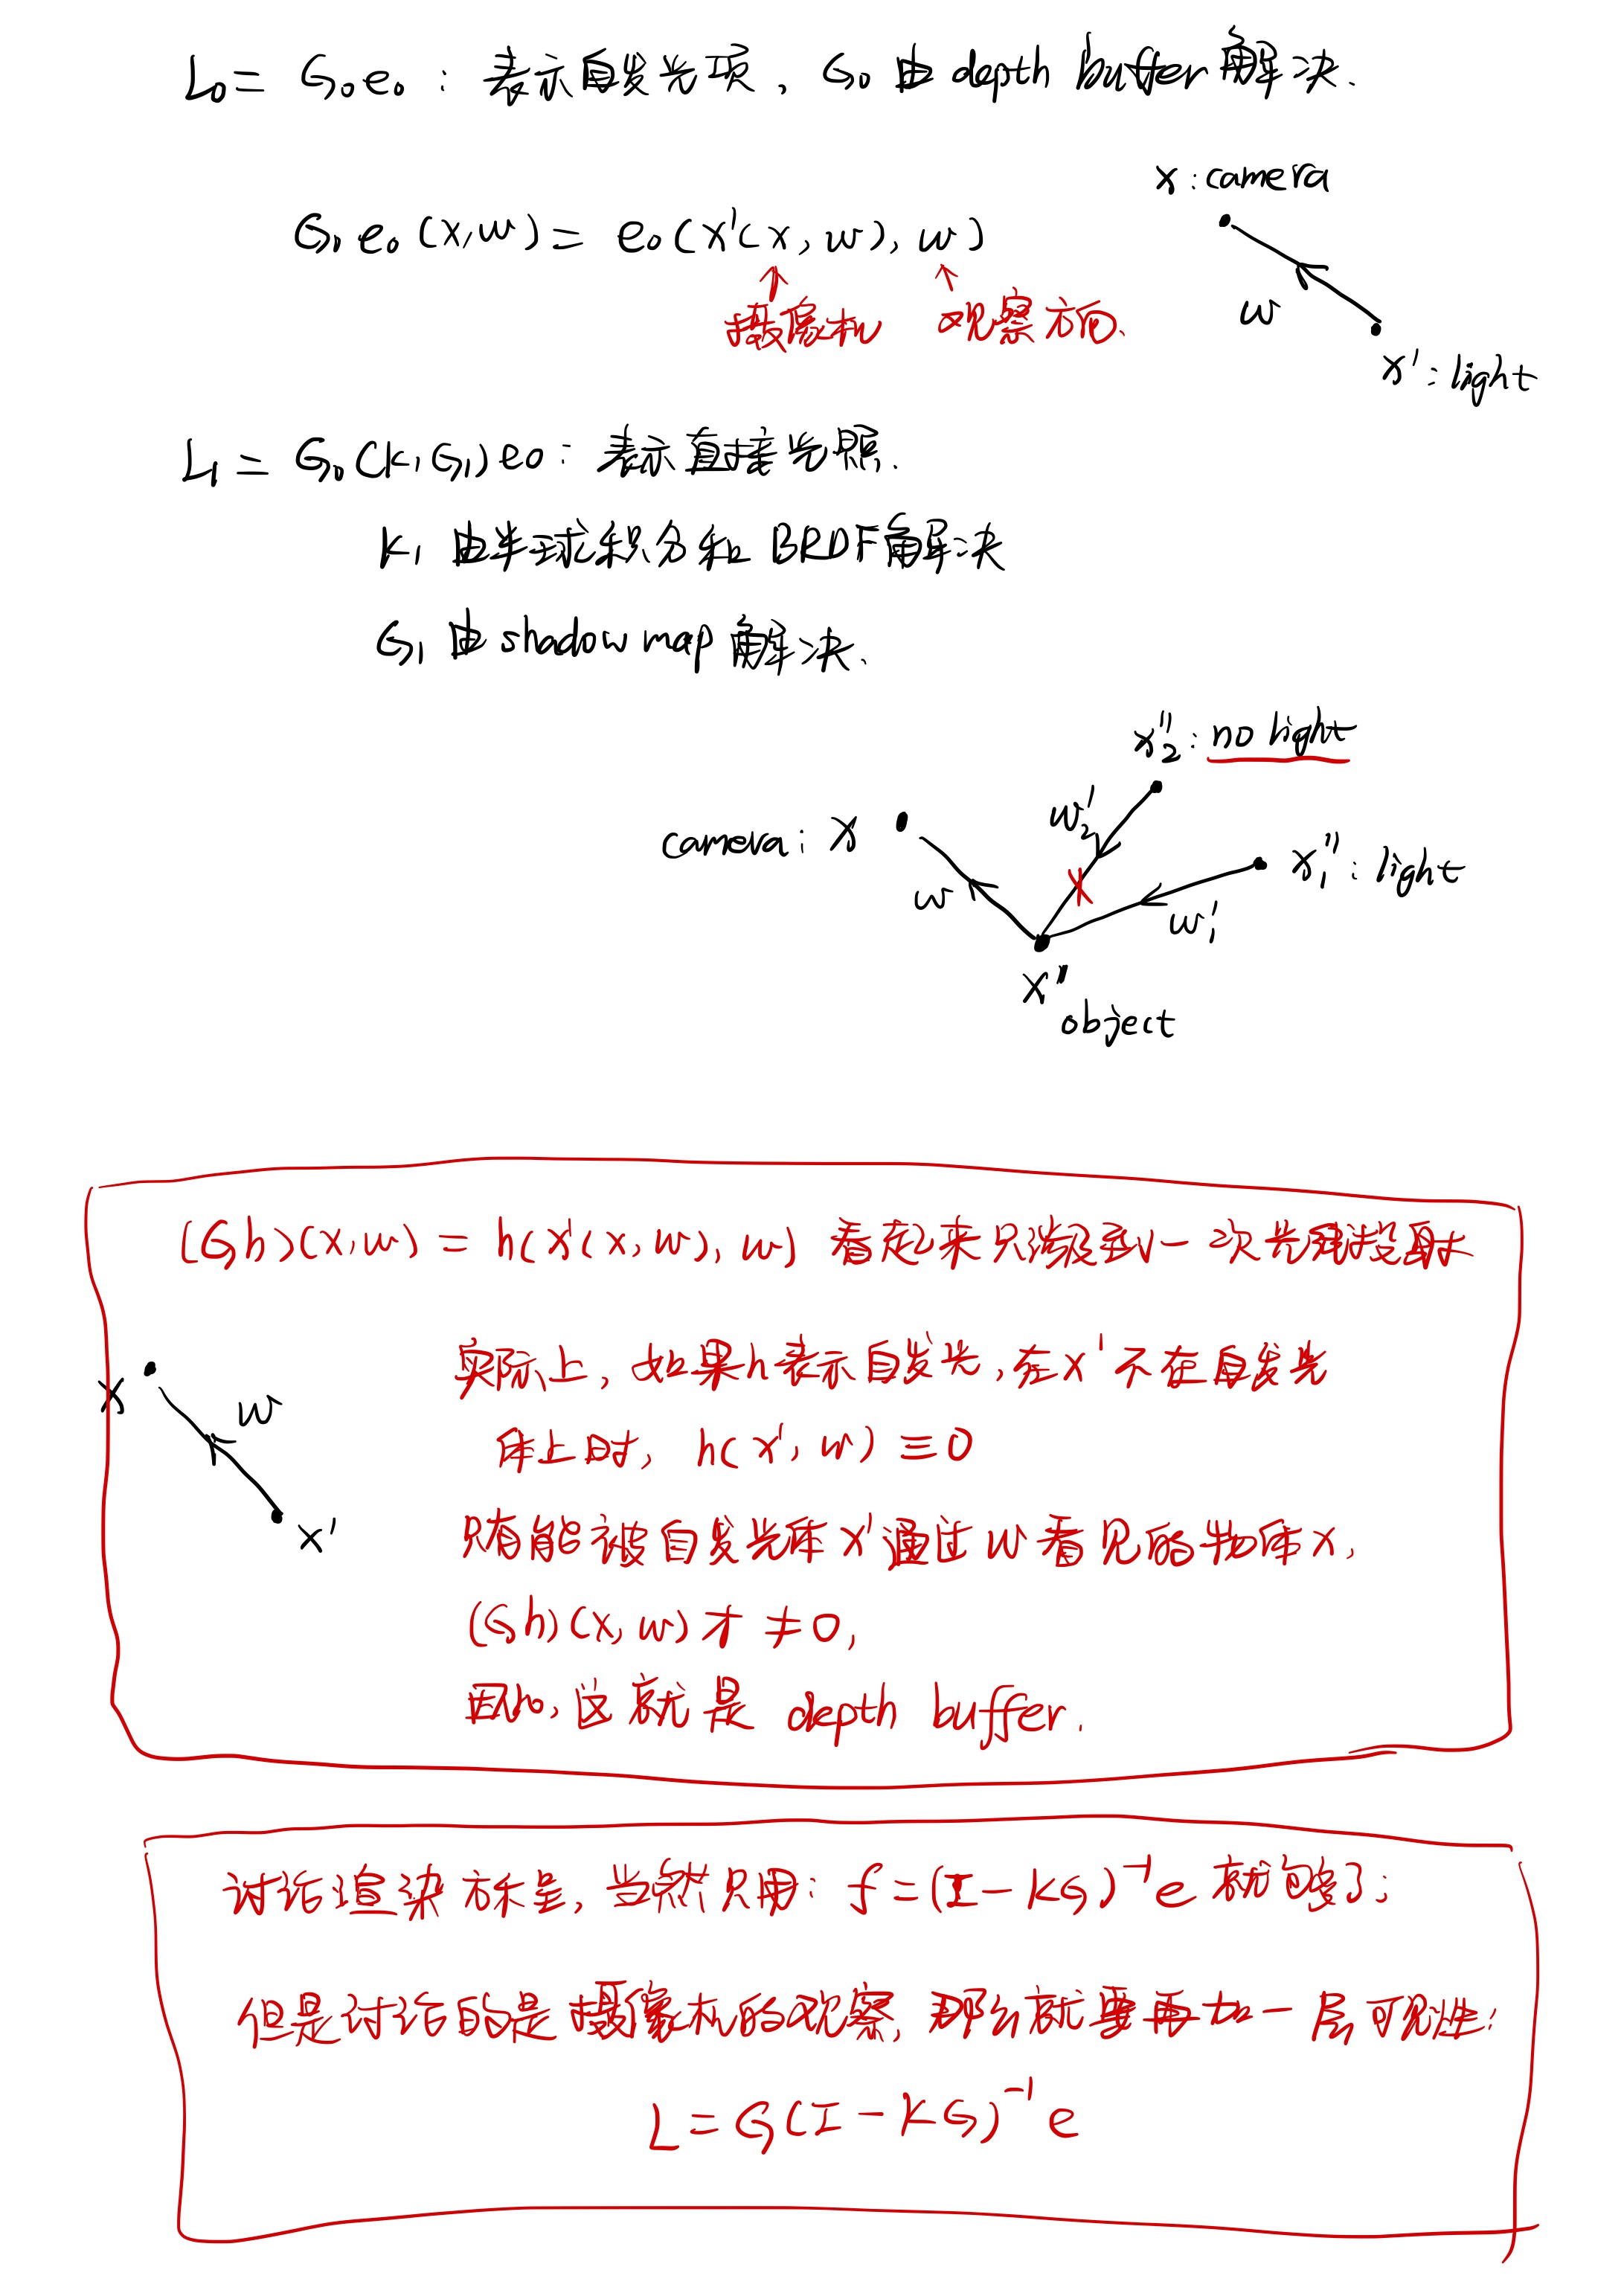 L₀ = G₀e₀：表示自发光项，G₀ 由 depth buffer 解决.
x : camera
G₁e₀(x,w) = e₀(x'(x,w),w)
摄像机 观察方向.
w
x' : light
L₁ = G₀(K₁G₁)e₀：表示直接光照.
K₁ 由半球积分和 BRDF 解决
G₁ 由 shadow map 解决.
x₂'' : no light
w₂'
camera : x
x₁'' : light
w
w₁'
x'' object
(Gh)(x,w) = h(x'(x,w),w) 看起来只涉及到一次光线投射
实际上，如果h表示自发光，在x'不在自发光
体上时，h(x',w) ≡ 0
x
w
x'
只有能被自发光体x'通过w看见的物体x，
(Gh)(x,w)才≠0，
因此，这就是 depth buffer.
讨论渲染方程，当然只用：f = (I - KG)⁻¹e 就够了；
但是讨论的是摄像机的观察，那么就要再加一层可见性：
L = G(I - KG)⁻¹e